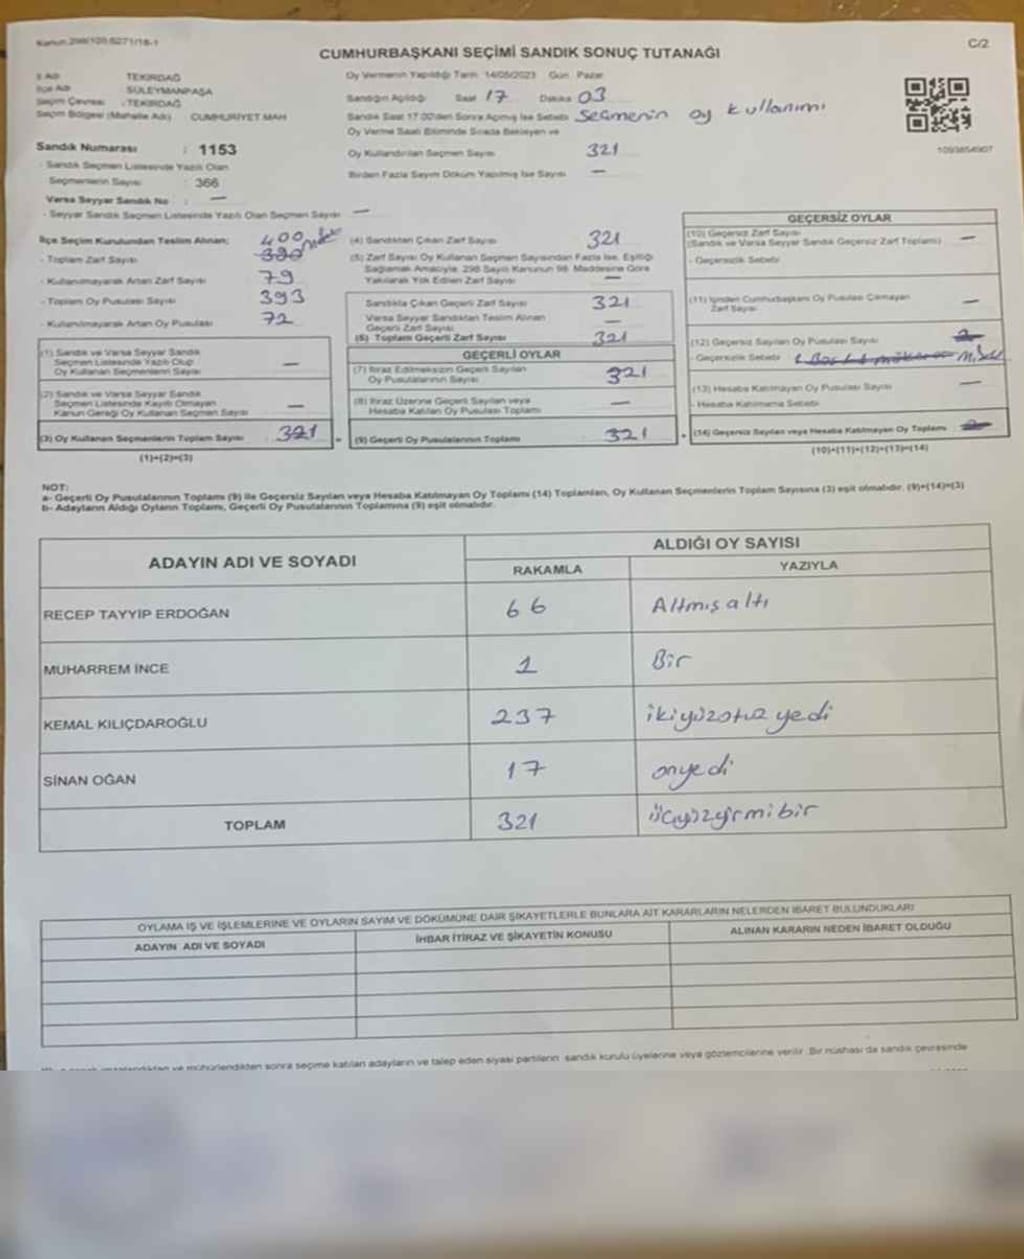 Kanun 298/109,6271/16-1
C/2
CUMHURBAŞKANI SEÇİMİ SANDIK SONUÇ TUTANAĞI
İl Adı TEKİRDAĞ
İlçe Adı SÜLEYMANPAŞA
Seçim Çevresi : TEKİRDAĞ
Seçim Bölgesi (Mahalle Adı) CUMHURİYET MAH
Sandık Numarası : 1153
- Sandık Seçmen Listesinde Yazılı Olan
Seçmenlerin Sayısı : 366
Varsa Seyyar Sandık No : —
- Seyyar Sandık Seçmen Listesinde Yazılı Olan Seçmen Sayısı —
Oy Vermenin Yapıldığı Tarih 14/05/2023 Gün Pazar
Sandığın Açıldığı Saat 17 Dakika 03
Sandık Saat 17.00'den Sonra Açılmış İse Sebebi Seçmenin oy kullanımı
Oy Verme Saati Bitiminde Sırada Bekleyen ve
Oy Kullandırılan Seçmen Sayısı 321
Birden Fazla Sayım Döküm Yapılmış İse Sayısı —
1093854907
İlçe Seçim Kurulundan Teslim Alınan; 400
- Toplam Zarf Sayısı 390
- Kullanılmayarak Artan Zarf Sayısı 79
- Toplam Oy Pusulası Sayısı 393
- Kullanılmayarak Artan Oy Pusulası 72
(1) Sandık ve Varsa Seyyar Sandık
Seçmen Listesinde Yazılı Olup
Oy Kullanan Seçmenlerin Sayısı —
(2) Sandık ve Varsa Seyyar Sandık
Seçmen Listesinde Kayıtlı Olmayan
Kanun Gereği Oy Kullanan Seçmen Sayısı —
(3) Oy Kullanan Seçmenlerin Toplam Sayısı 321
(1)+(2)=(3)
(4) Sandıktan Çıkan Zarf Sayısı 321
(5) Zarf Sayısı Oy Kullanan Seçmen Sayısından Fazla İse, Eşitliği
Sağlamak Amacıyla, 298 Sayılı Kanunun 98. Maddesine Göre
Yakılarak Yok Edilen Zarf Sayısı —
Sandıkta Çıkan Geçerli Zarf Sayısı 321
Varsa Seyyar Sandıktan Teslim Alınan
Geçerli Zarf Sayısı —
(6) Toplam Geçerli Zarf Sayısı 321
GEÇERLİ OYLAR
(7) İtiraz Edilmeksizin Geçerli Sayılan
Oy Pusulalarının Sayısı 321
(8) İtiraz Üzerine Geçerli Sayılan veya
Hesaba Katılan Oy Pusulası Toplamı —
(9) Geçerli Oy Pusulalarının Toplamı 321
GEÇERSİZ OYLAR
(10) Geçersiz Zarf Sayısı
(Sandık ve Varsa Seyyar Sandık Geçersiz Zarf Toplamı) —
- Geçersizlik Sebebi
(11) İçinden Cumhurbaşkanı Oy Pusulası Çıkmayan
Zarf Sayısı —
(12) Geçersiz Sayılan Oy Pusulası Sayısı 2
- Geçersizlik Sebebi
(13) Hesaba Katılmayan Oy Pusulası Sayısı —
- Hesaba Katılmama Sebebi
(14) Geçersiz Sayılan veya Hesaba Katılmayan Oy Toplamı 2
(10)+(11)+(12)+(13)=(14)
NOT:
a- Geçerli Oy Pusulalarının Toplamı (9) ile Geçersiz Sayılan veya Hesaba Katılmayan Oy Toplamı (14) Toplamları, Oy Kullanan Seçmenlerin Toplam Sayısına (3) eşit olmalıdır. (9)+(14)=(3)
b- Adayların Aldığı Oyların Toplamı, Geçerli Oy Pusulalarının Toplamına (9) eşit olmalıdır.
ADAYIN ADI VE SOYADI
ALDIĞI OY SAYISI
RAKAMLA YAZIYLA
RECEP TAYYİP ERDOĞAN 66 Altmış altı
MUHARREM İNCE 1 Bir
KEMAL KILIÇDAROĞLU 237 ikiyüzotuz yedi
SİNAN OĞAN 17 onyedi
TOPLAM 321 üçyüzyirmibir
OYLAMA İŞ VE İŞLEMLERİNE VE OYLARIN SAYIM VE DÖKÜMÜNE DAİR ŞİKAYETLERLE BUNLARA AİT KARARLARIN NELERDEN İBARET BULUNDUKLARI
ADAYIN ADI VE SOYADI İHBAR İTİRAZ VE ŞİKAYETİN KONUSU ALINAN KARARIN NEDEN İBARET OLDUĞU
ve mühürlendikten sonra seçime katılan adayların ve talep eden siyasi partilerin sandık kurulu üyelerine veya gözlemcilerine verilir. Bir nüshası da sandık çevresinde